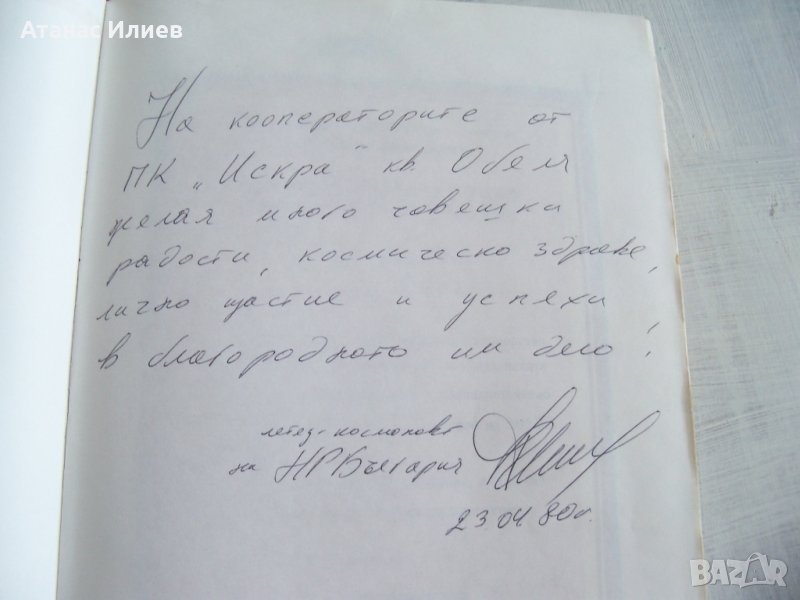 Атанас Илиев
На кооператорите от
ПК „Искра" кв. Обеля
желая много човешки
радости, космическо здраве,
лично щастие и успехи
в благородното им дело!
летец-космонавт
на НРБългария
23 04 80г.
BAZAR
bazar.bg